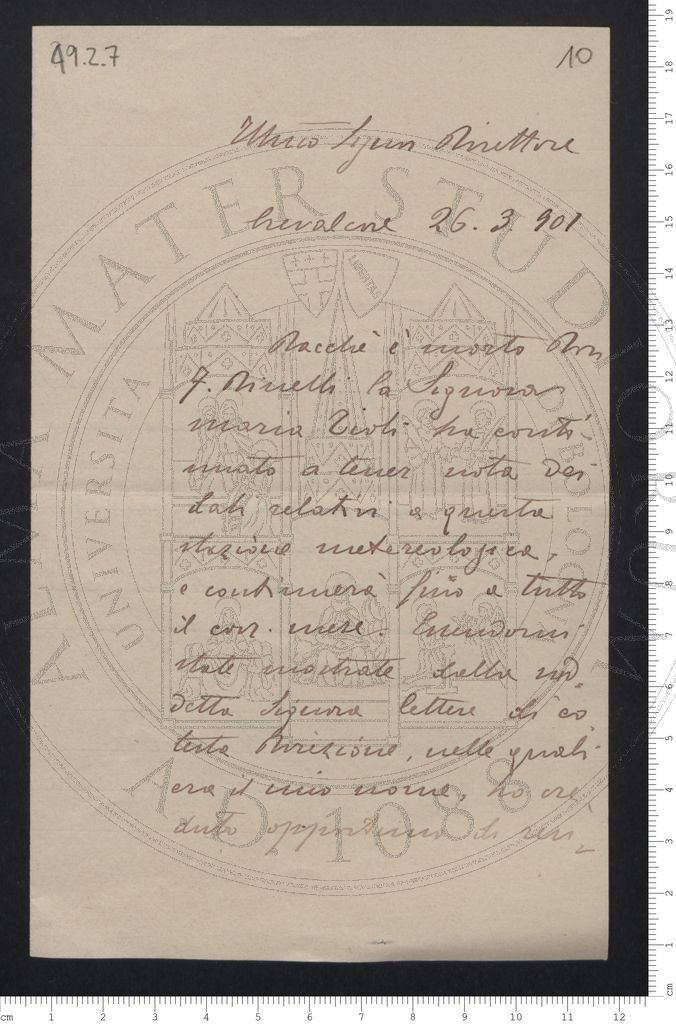 49.2.7
10
Illmo Signor Direttore
Crevalcore 26.3.901
Dacchè è morto Don
F. Rinelli la Signora
Maria Zioli ha conti-
nuato a tener nota dei
dati relativi a questa
stazione metereologica,
e continuerà fino a tutto
il corr. mese. Essendomi
state mostrate dalla sud
detta Signora lettere di co
testa Direzione, nelle quali
era il mio nome, ho cre-
duto opportuno di scri-
ALMA MATER STUDIORUM
UNIVERSITA DI BOLOGNA
LIBERTAS
A.D. 1088